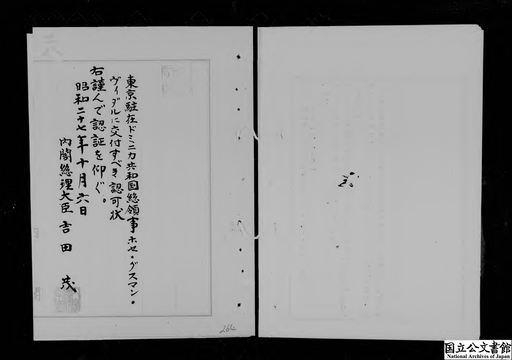 東京駐在ドミニカ共和国総領事ホセ・グスマン・
ヴィダルに交付すべき認可状
右謹んで認証を仰ぐ。
昭和二十七年十月六日
内閣總理大臣 吉田 茂
264
国立公文書館
National Archives of Japan